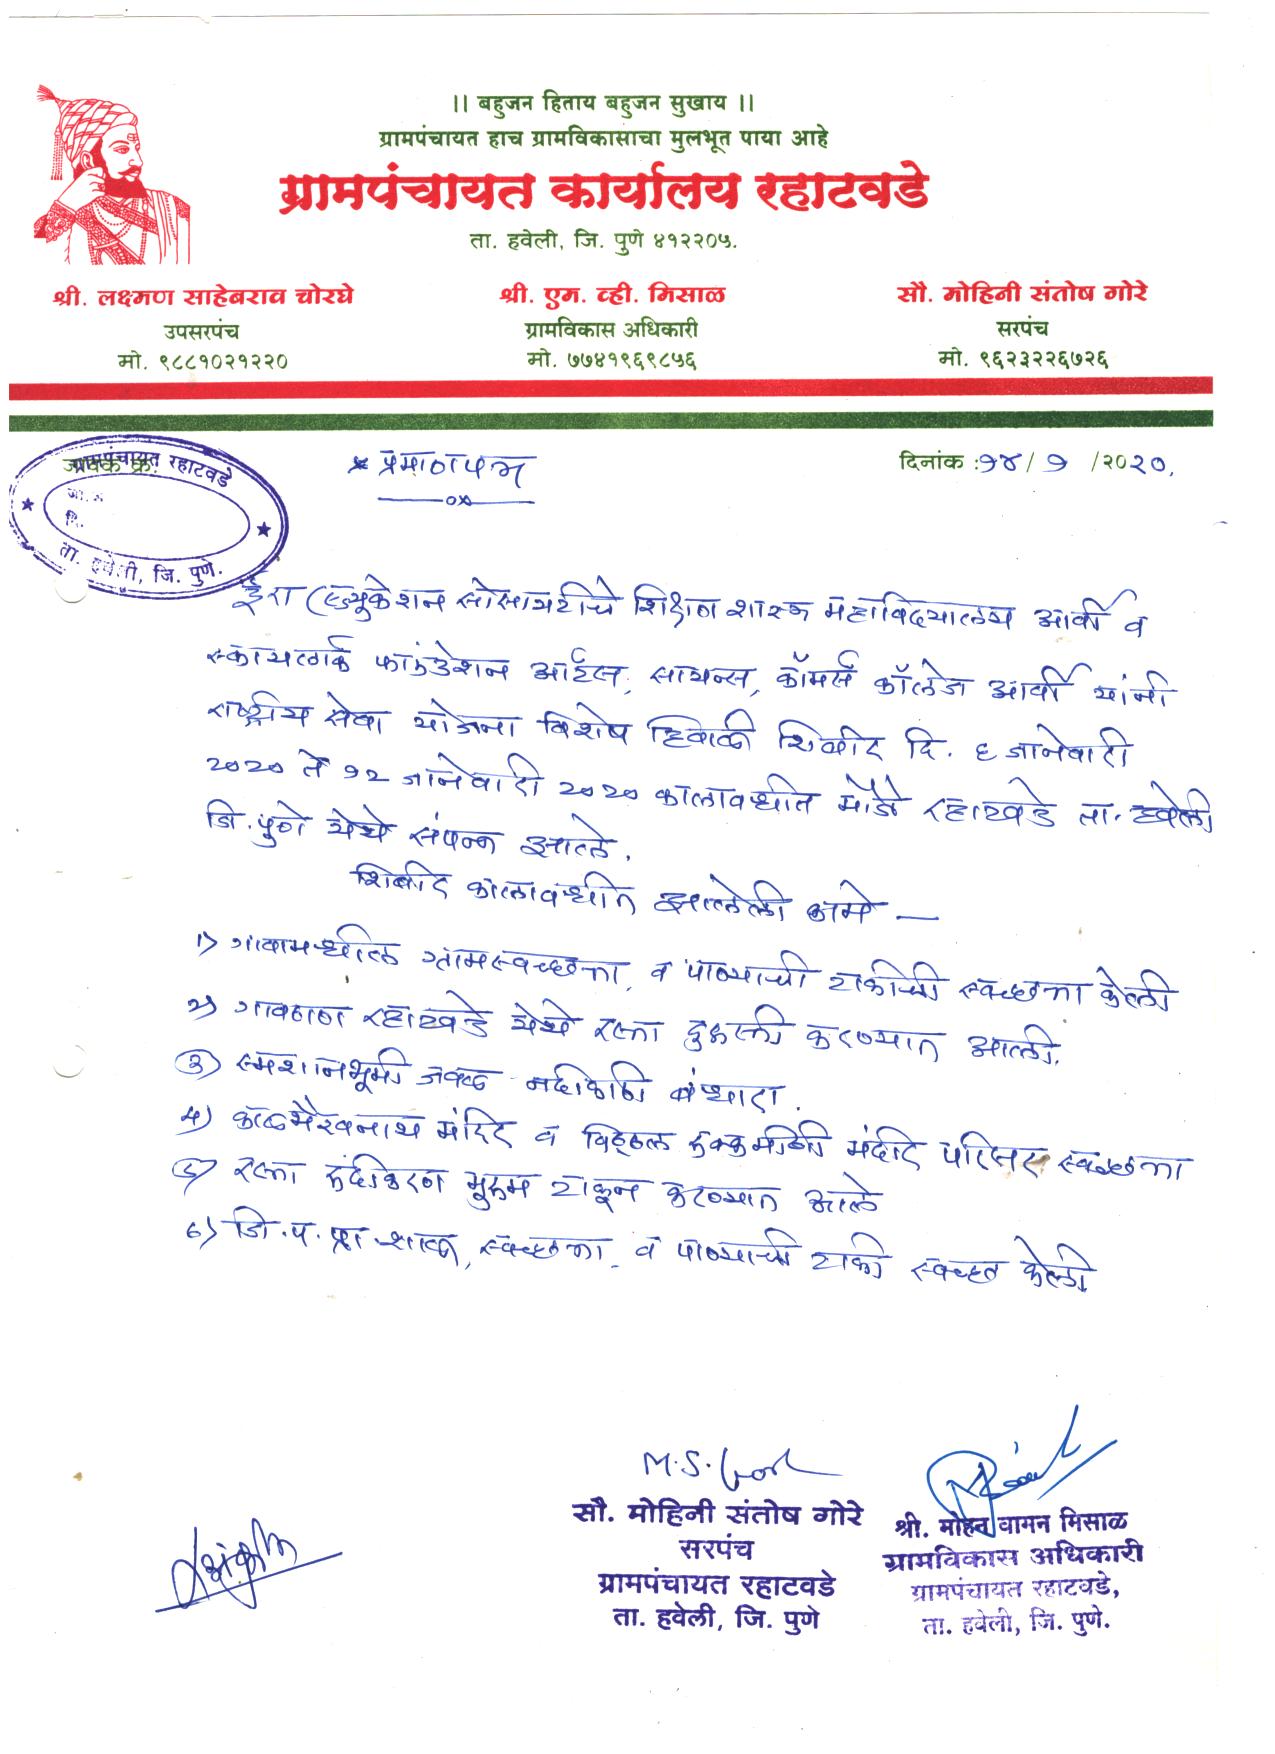 || बहुजन हिताय बहुजन सुखाय ||
ग्रामपंचायत हाच ग्रामविकासाचा मुलभूत पाया आहे
ग्रामपंचायत कार्यालय रहाटवडे
ता. हवेली, जि. पुणे ४१२२०५.
श्री. लक्ष्मण साहेबराव चोरघे श्री. एम. व्ही. मिसाळ सौ. मोहिनी संतोष गोरे
उपसरपंच ग्रामविकास अधिकारी सरपंच
मो. ९८८१०२१२२० मो. ७७४१९६९८५६ मो. ९६२३२२६७२६
जावक क्र.
ग्रामपंचायत रहाटवडे
जा. नं
दि.
ता. हवेली, जि. पुणे.
* प्रमाणपत्र दिनांक :१४/१/२०२०.
ईरा एज्युकेशन सोसायटीचे शिक्षणशास्त्र महाविद्यालय आर्वी व
स्कायलार्क फाऊंडेशन आर्टस, सायन्स, कॉमर्स कॉलेज आर्वी यांनी
राष्ट्रीय सेवा योजना विशेष हिवाळी शिबीर दि. ६ जानेवारी
२०२० ते १२ जानेवारी २०२० कालावधीत मौजे रहाटवडे ता. हवेली
जि. पुणे येथे संपन्न झाले.
शिबीर कालावधीत झालेली कामे —
1) गावामधील ग्रामस्वच्छता, व पाण्याची टाकीची स्वच्छता केली
२) गावठाण रहाटवडे येथे रस्ता दुरुस्ती करण्यात आली.
३) स्मशानभूमी जवळ नदीकाठी बंधारा.
४) काळभैरवनाथ मंदिर व विठ्ठल रुक्मीणी मंदीर परिसर स्वच्छता
५) रस्ता रुंदीकरण मुरुम टाकून करण्यात आले
६) जि. प. प्रा. शाळा, स्वच्छता, व पाण्याची टाकी स्वच्छ केली
M.S. Gore
सौ. मोहिनी संतोष गोरे
सरपंच
ग्रामपंचायत रहाटवडे
ता. हवेली, जि. पुणे
श्री. मोहन वामन मिसाळ
ग्रामविकास अधिकारी
ग्रामपंचायत रहाटवडे,
ता. हवेली, जि. पुणे.